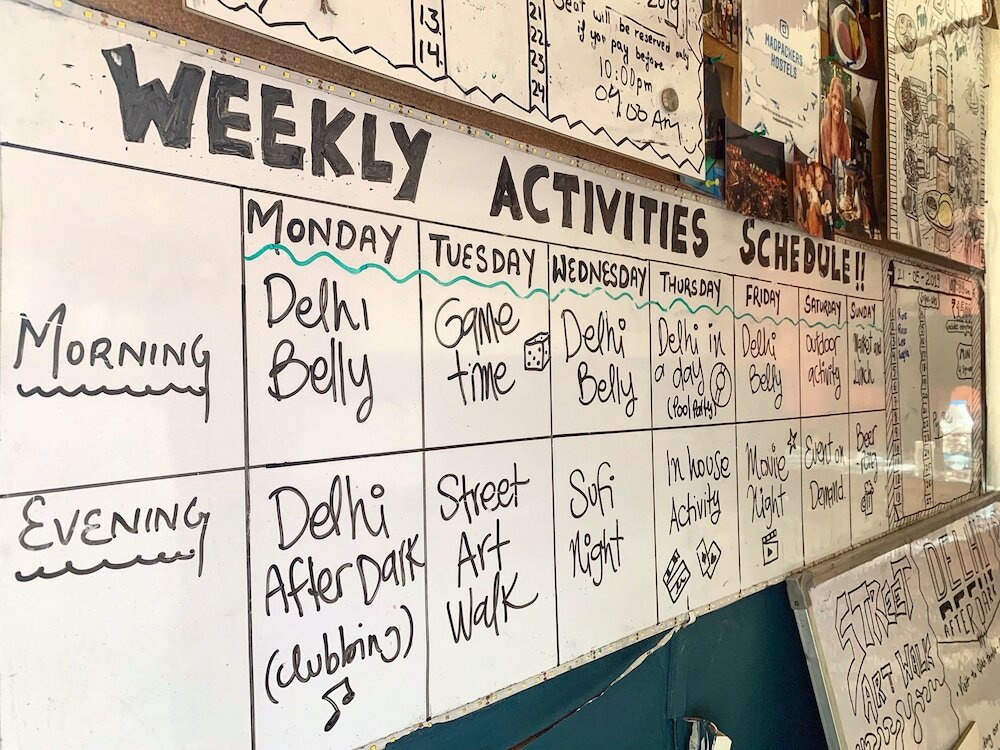 13.
14.
21
22
23
24
2019
Seat will be reserved only
if you pay before
10:00pm
04:00 Am
MADPACKERS
HOSTELS
WEEKLY ACTIVITIES SCHEDULE!!
MONDAY
TUESDAY
WEDNESDAY
THURSDAY
FRIDAY
SATURDAY
SUNDAY
MORNING
Delhi
Belly
Game
time
Delhi
Belly
Delhi in
a day
(Pool Party)
Delhi
Belly
outdoor
activity
Market and
Lunch
EVENING
Delhi
After Dark
(clubbing)
Street
Art
Walk
Sufi
Night
In house
Activity
Movie
Night
Event on
Demand
Beer
21-05-2019
STREET
ART WALK
DELHI
AFTER DARK